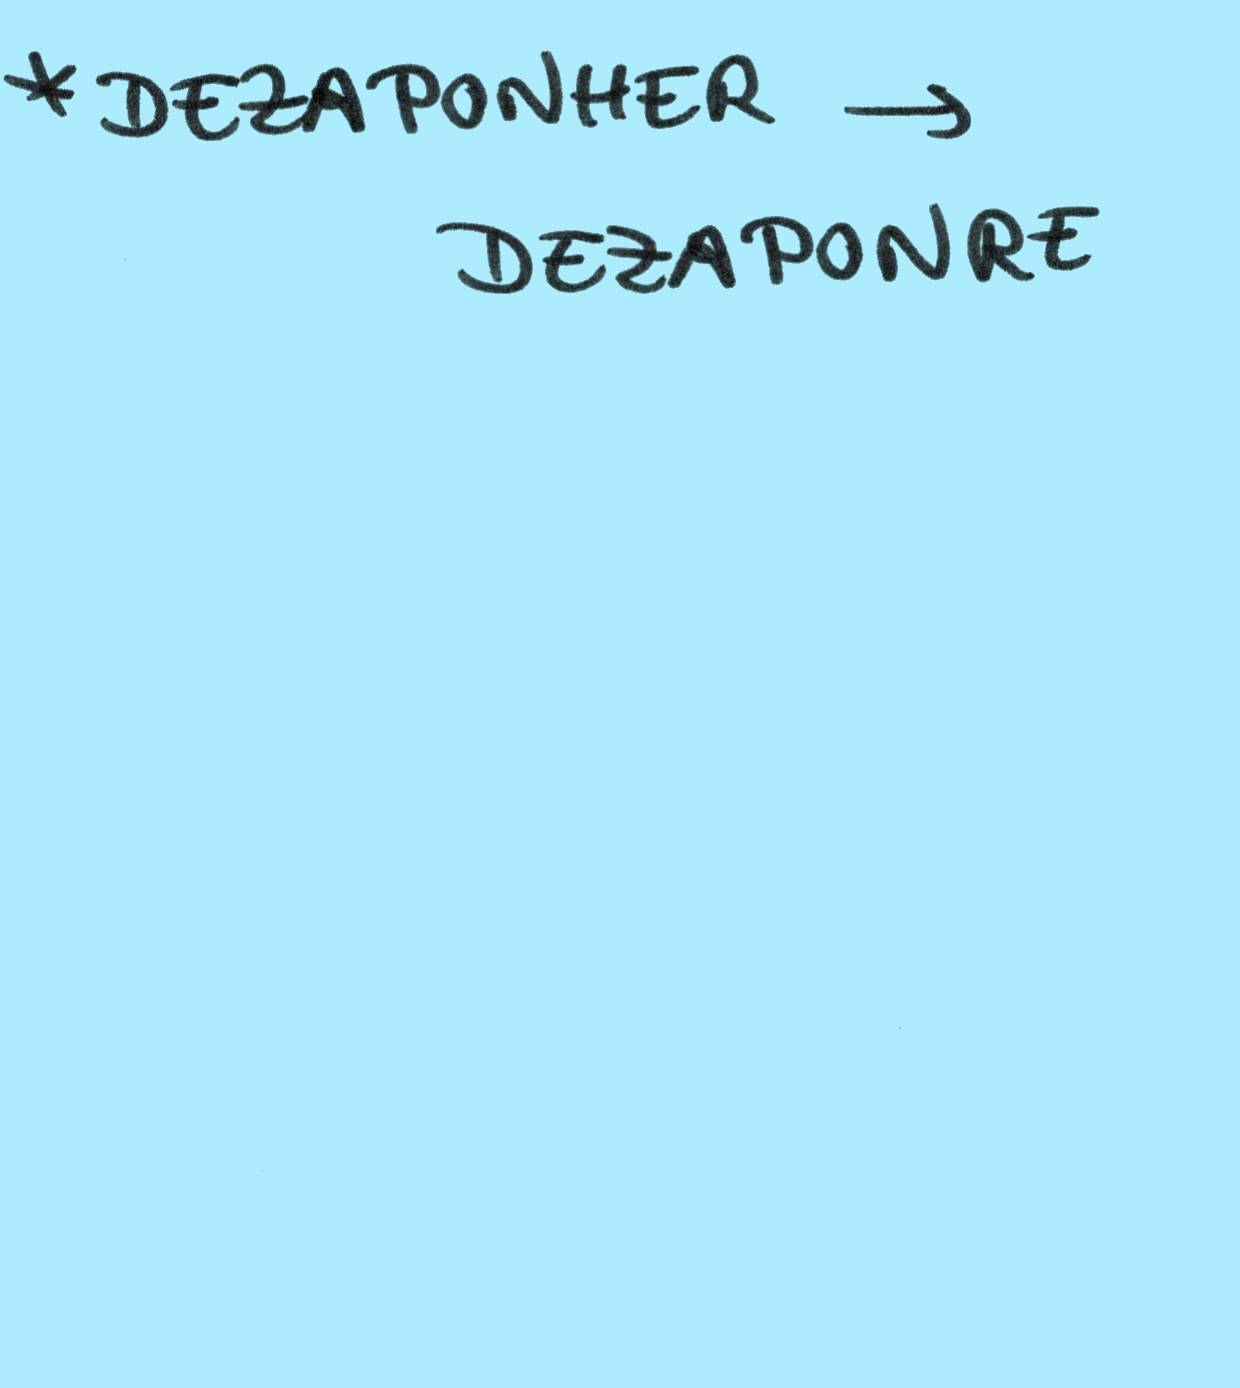 *DEZAPONHER →
DEZAPONRE